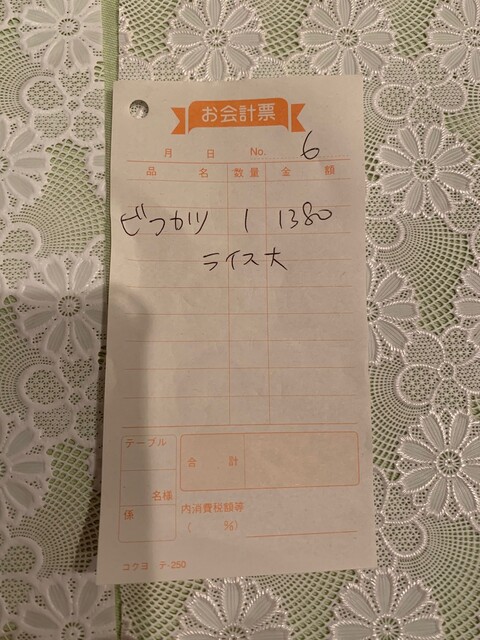 お会計票
月 日 No. 6
品 名 数量 金 額
ビフカツ 1 1380
ライス大
テーブル
合 計
名様
係
内消費税額等
( %)
コクヨ テ-250